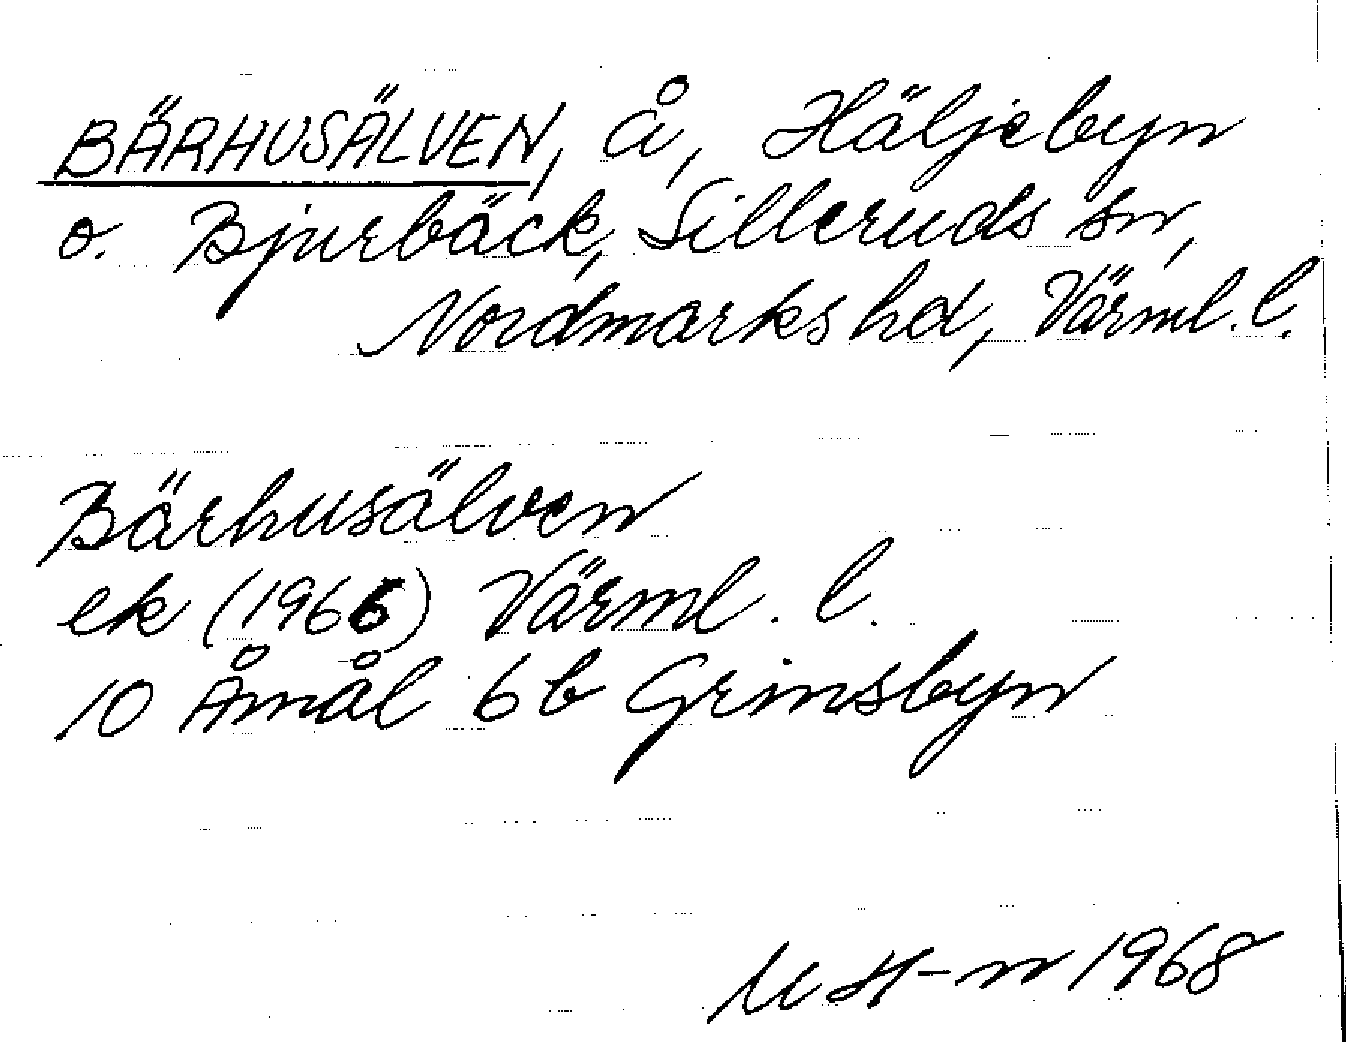 BÄRHUSÄLVEN, å, Häljebyn
o. Bjurbäck, Silleruds sn,
Nordmarks hd, Värml. l.
Bärhusälven
ek (1966) Värml. l.
10 Åmål 6b Grinsbyn
M H-n 1968